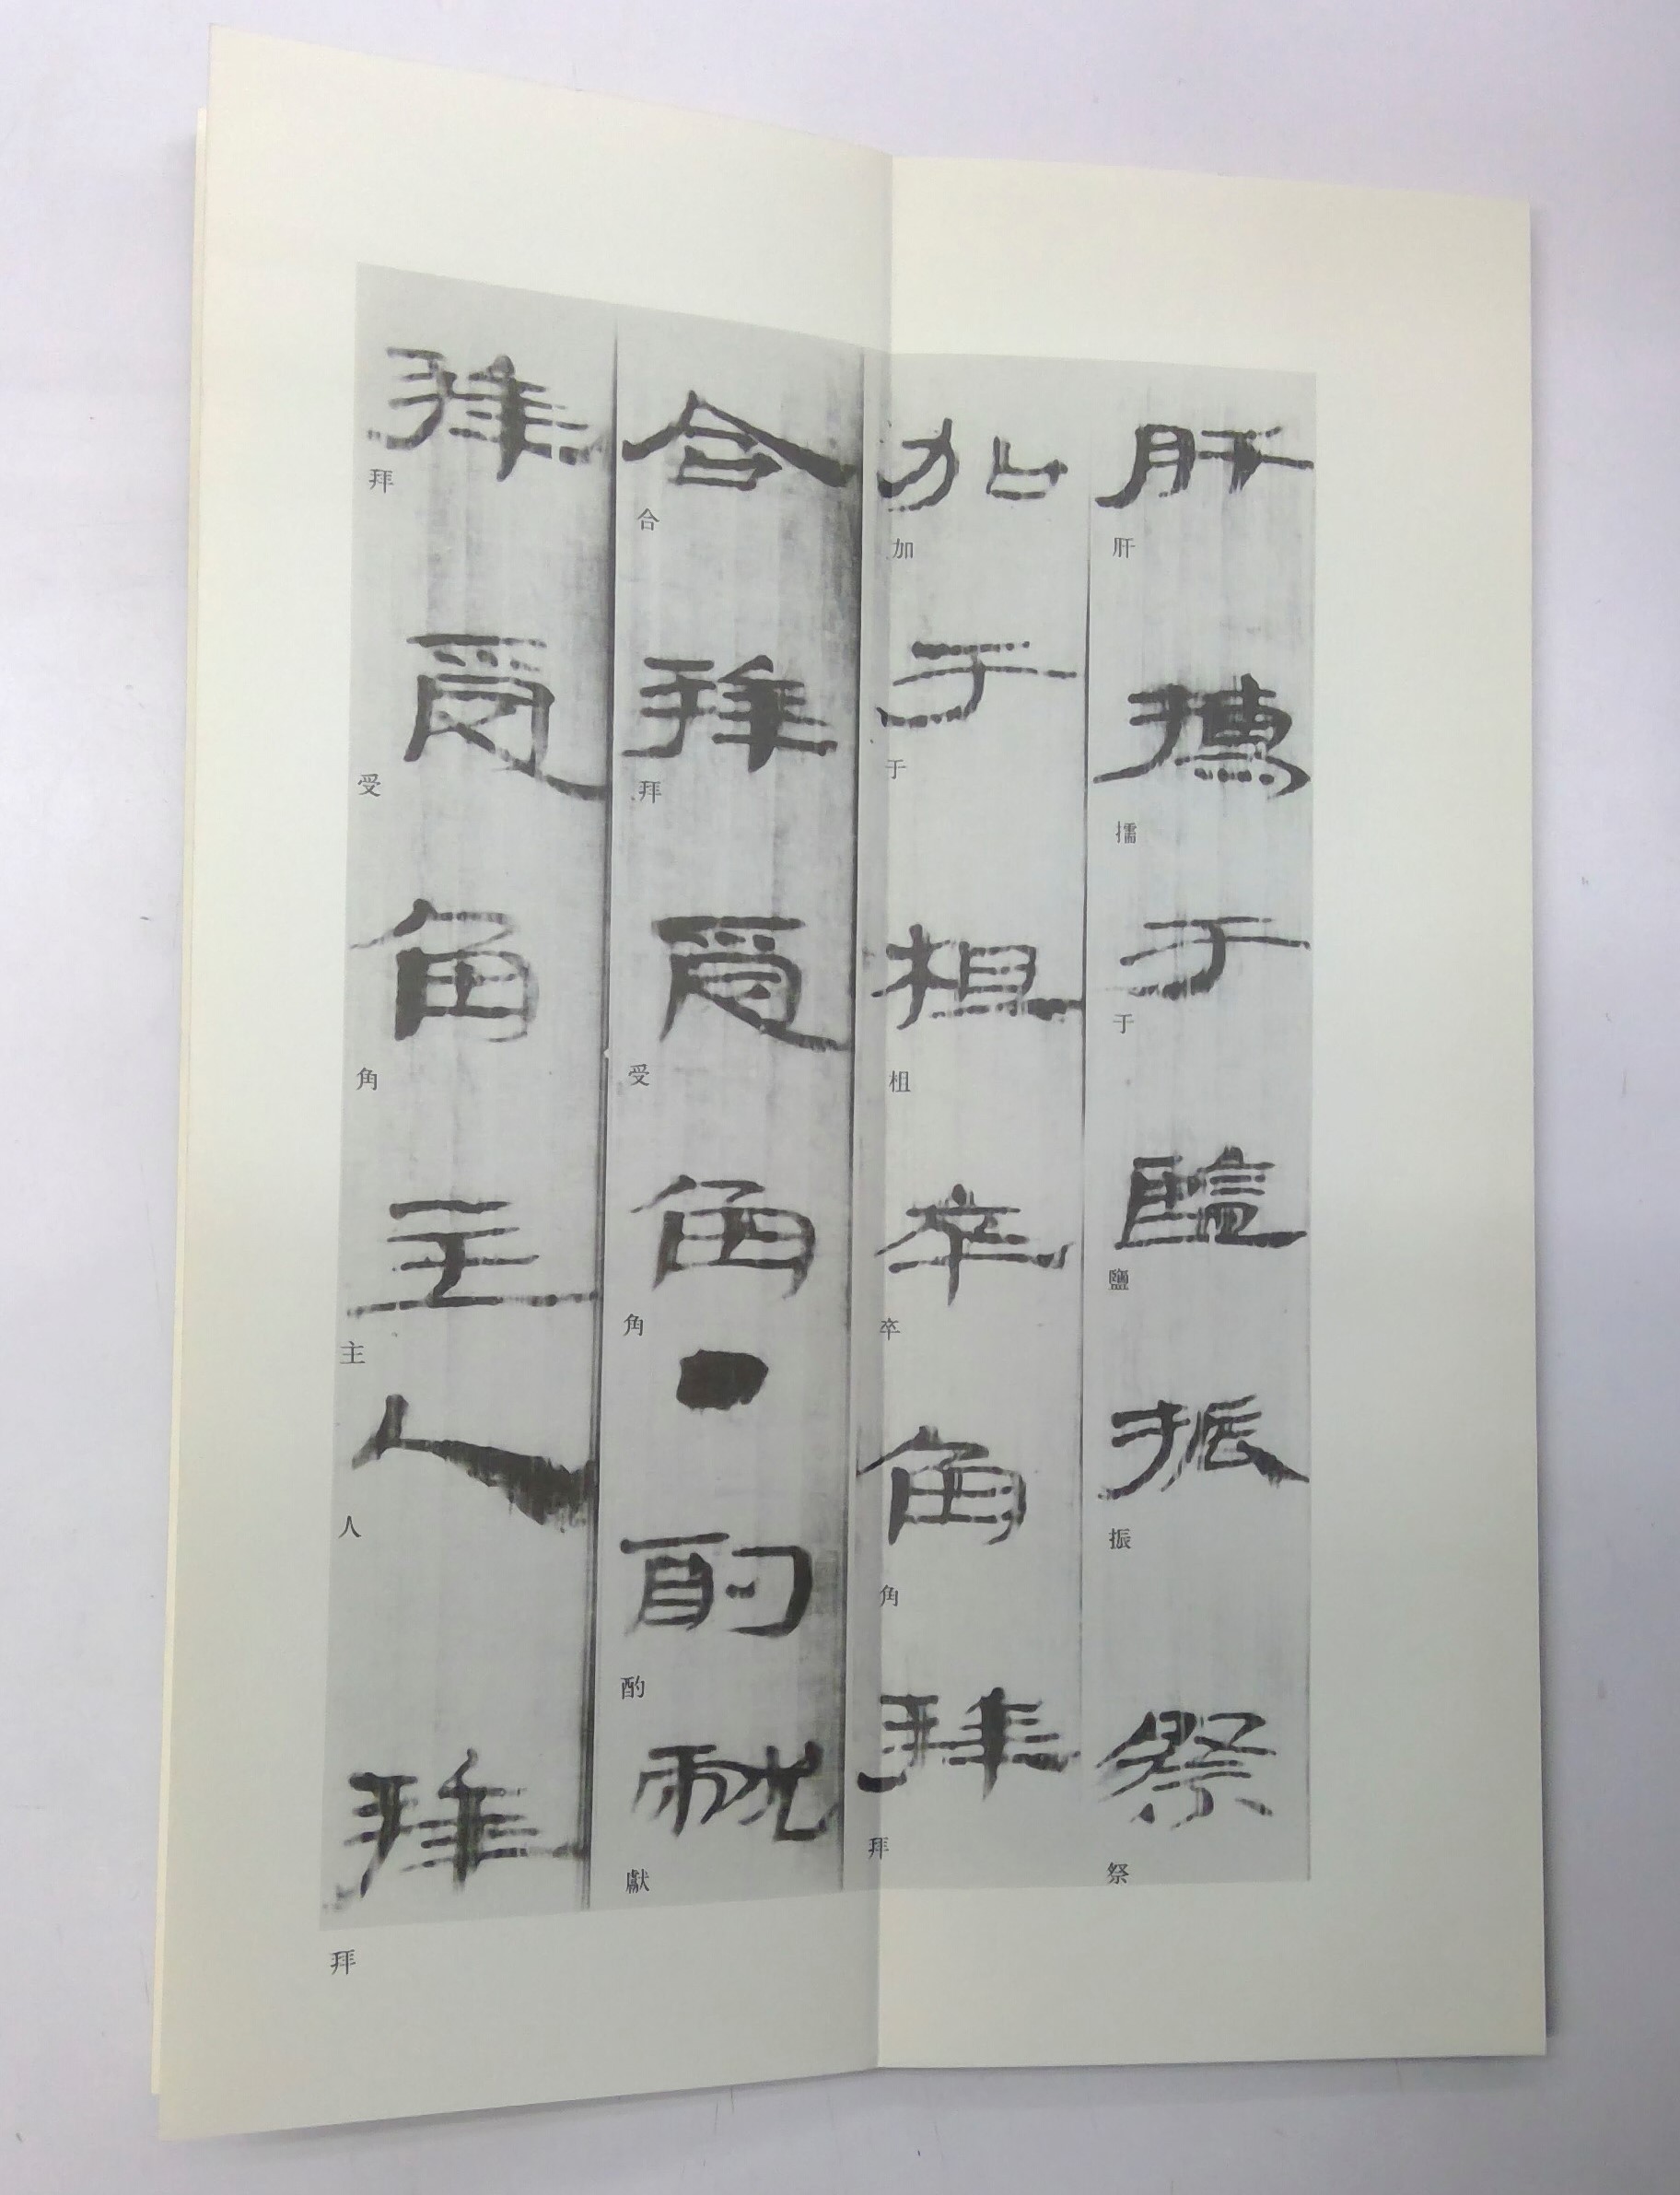 肝擩于鹽振祭
加于柤卒角拜
合拜受角●酌獻
拜受角主人拜